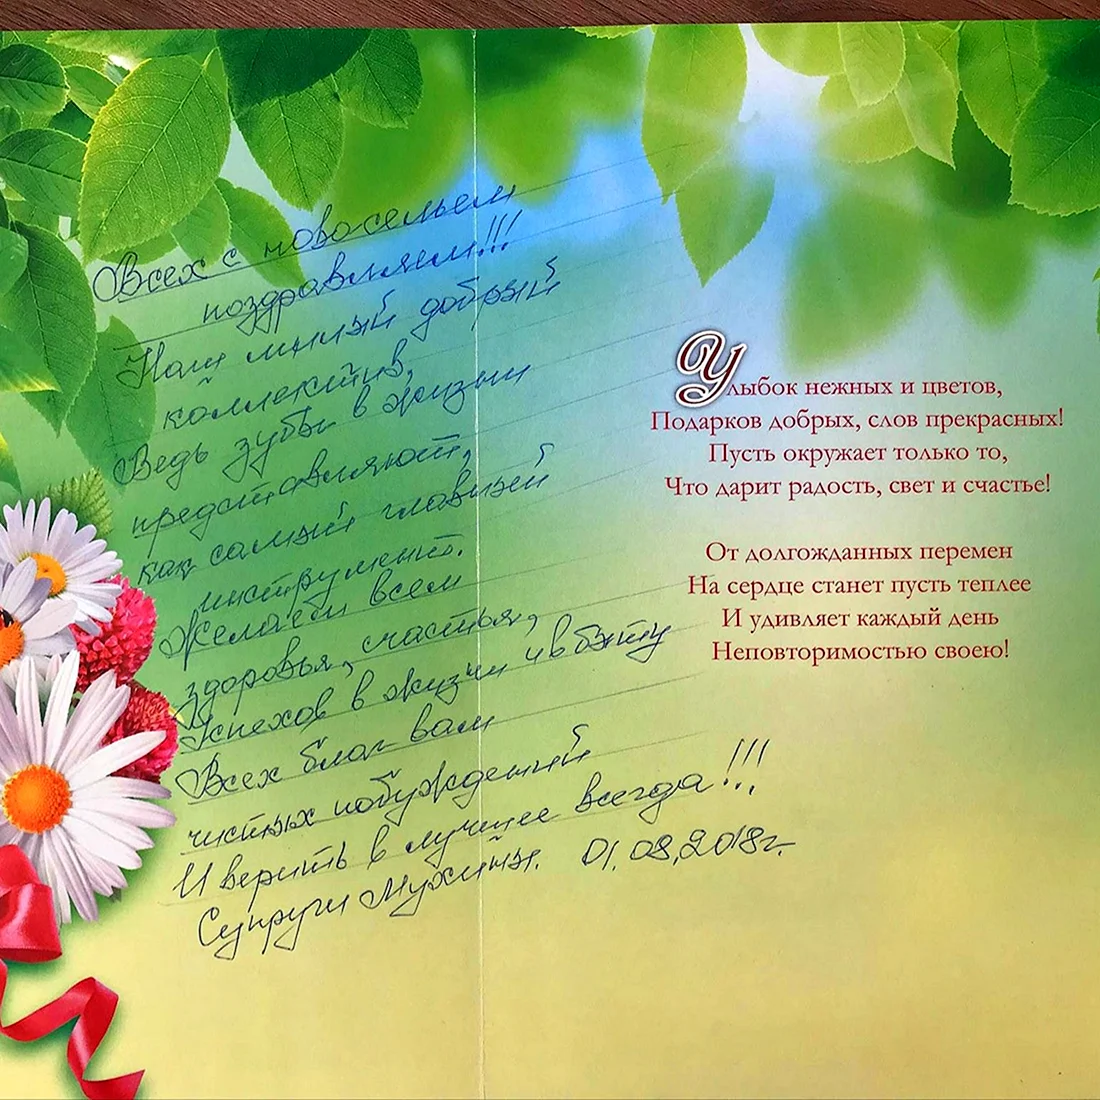 Всех с новосельем
поздравляем!!!
Наш милый добрый
коллектив,
Ведь зубы в жизни
представляют,
как самый главный
инструмент.
Желаем всем
здоровья, счастья,
Успехов в жизни и в быту
Всех благ вам
чистых побуждений
И верить в лучшее всегда!!!
Супруги Мухины. 01.08.2018г.
Улыбок нежных и цветов,
Подарков добрых, слов прекрасных!
Пусть окружает только то,
Что дарит радость, свет и счастье!
От долгожданных перемен
На сердце станет пусть теплее
И удивляет каждый день
Неповторимостью своею!